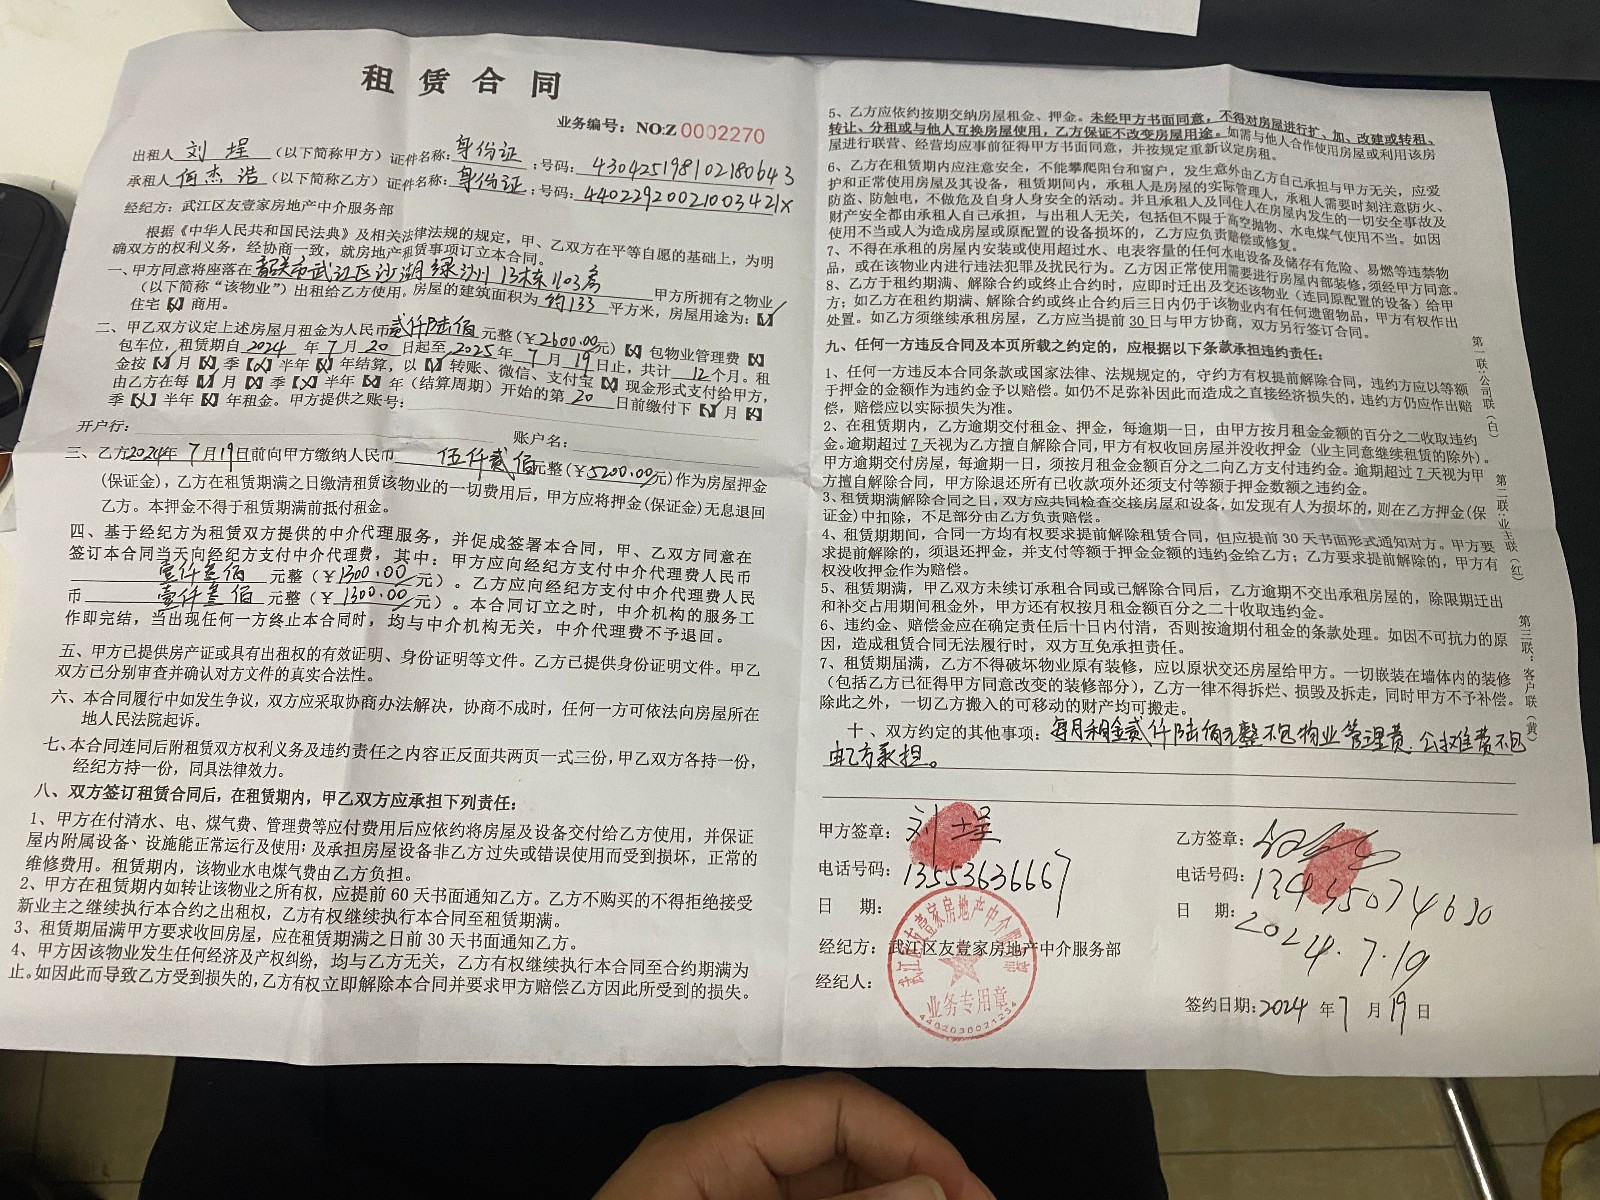 租赁合同
业务编号：NO:Z 0002270
出租人 刘埕 （以下简称甲方）证件名称：身份证；号码：430425198102180643
承租人 何杰浩 （以下简称乙方）证件名称：身份证；号码：44022920021003421X
经纪方：武江区友壹家房地产中介服务部
根据《中华人民共和国民法典》及相关法律法规的规定，甲、乙双方在平等自愿的基础上，为明
确双方的权利义务，经协商一致，就房地产租赁事项订立本合同。
一、甲方同意将座落在 韶关市武江区沙湖绿洲13栋1103房 甲方所拥有之物业
（以下简称“该物业”）出租给乙方使用。房屋的建筑面积为 约133 平方米，房屋用途为：【√】
住宅【×】商用。
二、甲乙双方议定上述房屋月租金为人民币 贰仟陆佰 元整（￥2600.00元）【×】包物业管理费【×】
包车位，租赁期自 2024 年 7 月 20 日起至 2025 年 7 月 19 日止，共计 12 个月。租
金按【√】月【×】季【×】半年【×】年结算，以【√】转账、微信、支付宝【×】现金形式支付给甲方，
由乙方在每【√】月【×】季【×】半年【×】年（结算周期）开始的第 20 日前缴付下【√】月【×】
季【×】半年【×】年租金。甲方提供之账号：
开户行： 账户名：
三、乙方 2024年 7月19日前向甲方缴纳人民币 伍仟贰佰 元整（￥5200.00元）作为房屋押金
（保证金），乙方在租赁期满之日缴清租赁该物业的一切费用后，甲方应将押金（保证金）无息退回
乙方。本押金不得于租赁期满前抵付租金。
四、基于经纪方为租赁双方提供的中介代理服务，并促成签署本合同，甲、乙双方同意在
签订本合同当天向经纪方支付中介代理费，其中：甲方应向经纪方支付中介代理费人民币
壹仟叁佰 元整（￥1300.00元）。乙方应向经纪方支付中介代理费人民
币 壹仟叁佰 元整（￥1300.00元）。本合同订立之时，中介机构的服务工
作即完结，当出现任何一方终止本合同时，均与中介机构无关，中介代理费不予退回。
五、甲方已提供房产证或具有出租权的有效证明、身份证明等文件。乙方已提供身份证明文件。甲乙
双方已分别审查并确认对方文件的真实合法性。
六、本合同履行中如发生争议，双方应采取协商办法解决，协商不成时，任何一方可依法向房屋所在
地人民法院起诉。
七、本合同连同后附租赁双方权利义务及违约责任之内容正反面共两页一式三份，甲乙双方各持一份，
经纪方持一份，同具法律效力。
八、双方签订租赁合同后，在租赁期内，甲乙双方应承担下列责任：
1、甲方在付清水、电、煤气费、管理费等应付费用后应依约将房屋及设备交付给乙方使用，并保证
屋内附属设备、设施能正常运行及使用；及承担房屋设备非乙方过失或错误使用而受到损坏，正常的
维修费用。租赁期内，该物业水电煤气费由乙方负担。
2、甲方在租赁期内如转让该物业之所有权，应提前60天书面通知乙方。乙方不购买的不得拒绝接受
新业主之继续执行本合约之出租权，乙方有权继续执行本合同至租赁期满。
3、租赁期届满甲方要求收回房屋，应在租赁期满之日前30天书面通知乙方。
4、甲方因该物业发生任何经济及产权纠纷，均与乙方无关，乙方有权继续执行本合同至合约期满为
止。如因此而导致乙方受到损失的，乙方有权立即解除本合同并要求甲方赔偿乙方因此所受到的损失。
5、乙方应依约按期交纳房屋租金、押金。未经甲方书面同意，不得对房屋进行扩、加、改建或转租、
转让、分租或与他人互换房屋使用，乙方保证不改变房屋用途。如需与他人合作使用房屋或利用该房
屋进行联营、经营均应事前征得甲方书面同意，并按规定重新议定房租。
6、乙方在租赁期内应注意安全，不能攀爬阳台和窗户，发生意外由乙方自己承担与甲方无关，应爱
护和正常使用房屋及其设备，租赁期间内，承租人是房屋的实际管理人，承租人需要时刻注意防火、
防盗、防触电，不做危及自身人身安全的活动。并且承租人及同住人在房屋内发生的一切安全事故及
财产安全都由承租人自己承担，与出租人无关，包括但不限于高空抛物、水电煤气使用不当。如因
使用不当或人为造成房屋或原配置的设备损坏的，乙方应负责赔偿或修复。
7、不得在承租的房屋内安装或使用超过水、电表容量的任何水电设备及储存有危险、易燃等违禁物
品，或在该物业内进行违法犯罪及扰民行为。乙方因正常使用需要进行房屋内部装修，须经甲方同意。
8、乙方于租约期满、解除合约或终止合约时，应即时迁出及交还该物业（连同原配置的设备）给甲
方；如乙方在租约期满、解除合约或终止合约后三日内仍于该物业内有任何遗留物品，甲方有权作出
处置。如乙方须继续承租房屋，乙方应当提前30日与甲方协商，双方另行签订合同。
九、任何一方违反合同及本页所载之约定的，应根据以下条款承担违约责任：
1、任何一方违反本合同条款或国家法律、法规规定的，守约方有权提前解除合同，违约方应以等额
于押金的金额作为违约金予以赔偿。如仍不足弥补因此而造成之直接经济损失的，违约方仍应作出赔
偿，赔偿应以实际损失为准。
2、在租赁期内，乙方逾期交付租金、押金，每逾期一日，由甲方按月租金金额的百分之二收取违约
金。逾期超过7天视为乙方擅自解除合同，甲方有权收回房屋并没收押金（业主同意继续租赁的除外）。
甲方逾期交付房屋，每逾期一日，须按月租金金额百分之二向乙方支付违约金。逾期超过7天视为甲
方擅自解除合同，甲方除退还所有已收款项外还须支付等额于押金数额之违约金。
3、租赁期满解除合同之日，双方应共同检查交接房屋和设备，如发现有人为损坏的，则在乙方押金（保
证金）中扣除，不足部分由乙方负责赔偿。
4、租赁期期间，合同一方均有权要求提前解除租赁合同，但应提前30天书面形式通知对方。甲方要
求提前解除的，须退还押金，并支付等额于押金金额的违约金给乙方；乙方要求提前解除的，甲方有
权没收押金作为赔偿。
5、租赁期满，甲乙双方未续订承租合同或已解除合同后，乙方逾期不交出承租房屋的，除限期迁出
和补交占用期间租金外，甲方还有权按月租金额百分之二十收取违约金。
6、违约金、赔偿金应在确定责任后十日内付清，否则按逾期付租金的条款处理。如因不可抗力的原
因，造成租赁合同无法履行时，双方互免承担责任。
7、租赁期届满，乙方不得破坏物业原有装修，应以原状交还房屋给甲方。一切嵌装在墙体内的装修
（包括乙方已征得甲方同意改变的装修部分），乙方一律不得拆烂、损毁及拆走，同时甲方不予补偿。
除此之外，一切乙方搬入的可移动的财产均可搬走。
十、双方约定的其他事项：每月租金贰仟陆佰元整不包物业管理费、公摊费不包
由乙方承担。
甲方签章：刘埕
电话号码：13553636667
日期：
经纪方：武江区友壹家房地产中介服务部
经纪人：
乙方签章：
电话号码：13435074630
日期：2024.7.19
签约日期：2024 年 7 月 19 日
武江区友壹家房地产中介服务部
业务专用章
第一联：公司联（白）
第二联：业主联（红）
第三联：客户联（黄）